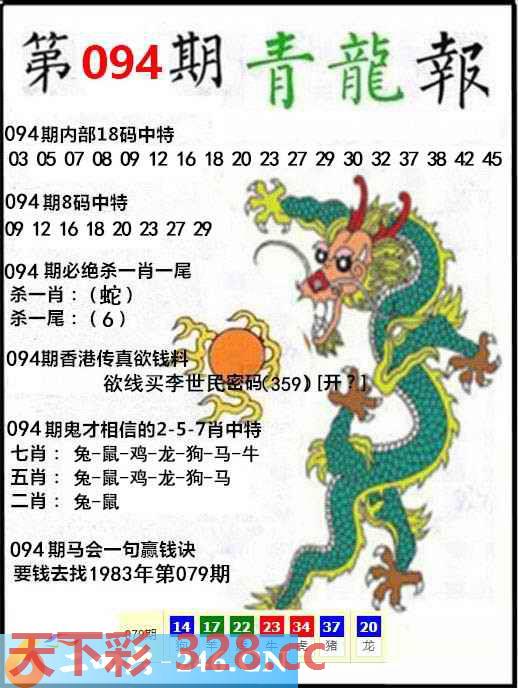 第094期 青龍報
094期内部18码中特
03 05 07 08 09 12 16 18 20 23 27 29 30 32 37 38 42 45
094期8码中特
09 12 16 18 20 23 27 29
094期必绝杀一肖一尾
杀一肖：（蛇）
杀一尾：（6）
094期香港传真欲钱料
欲线买李世民密码(359)[开?]
094期鬼才相信的2-5-7肖中特
七肖：兔-鼠-鸡-龙-狗-马-牛
五肖：兔-鼠-鸡-龙-狗-马
二肖：兔-鼠
094期马会一句赢钱诀
要钱去找1983年第079期
079期 14 17 22 23 34 37 20
狗 羊 牛 虎 猪 龙
天下彩-328.cc